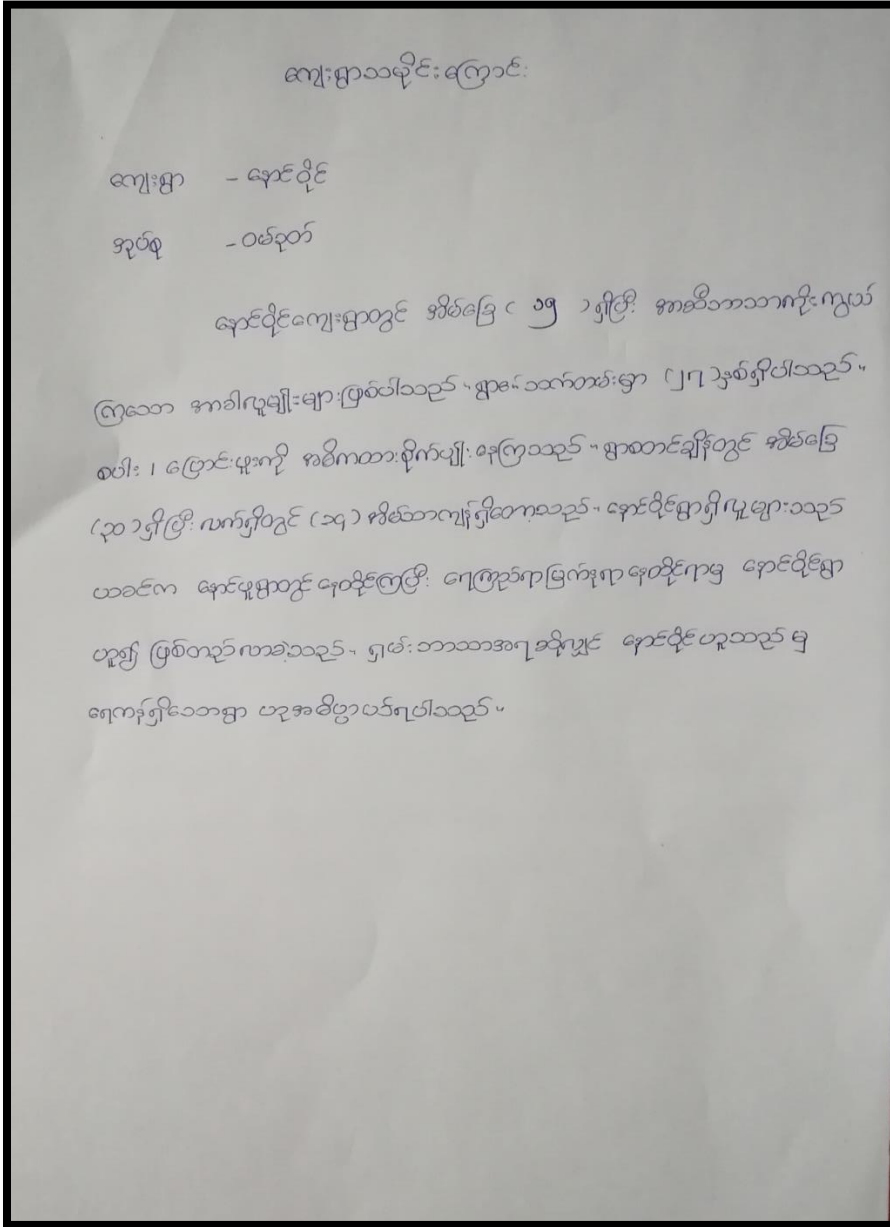 ကျေးရွာသမိုင်းကြောင်း
ကျေးရွာ - နောင်ဝိုင်
အုပ်စု - ဝမ်ခုတ်
နောင်ဝိုင်ကျေးရွာတွင် အိမ်ခြေ ( ၁၅ ) ရှိပြီး အာဆီဘာသာကိုးကွယ်
ကြသော အာခါလူမျိုးများဖြစ်ပါသည်။ ရွာစမ်သက်တမ်းမှာ (၂၇) နှစ်ရှိပါသည်။
စပါး၊ ပြောင်းဖူးကို အဓိကထားစိုက်ပျိုးနေကြသည်။ ရွာစတင်ချိန်တွင် အိမ်ခြေ
(၃၀) ရှိပြီး လက်ရှိတွင် (၁၅) အိမ်သာကျန်ရှိတော့သည်။ နောင်ဝိုင်ရွာရှိလူများသည်
ယခင်က နောင်ပူရွာတွင် နေထိုင်ကြပြီး ရေကြည်ရာမြက်နုရာ နေထိုင်ရာမှ နောင်ဝိုင်ရွာ
ဟူ၍ ဖြစ်တည်လာခဲ့သည်။ ရှမ်းဘာသာအရဆိုလျှင် နောင်ဝိုင်ဟူသည်မှ
ရေကန်ရှိသောရွာ ဟုအဓိပ္ပာယ်ရပါသည်။